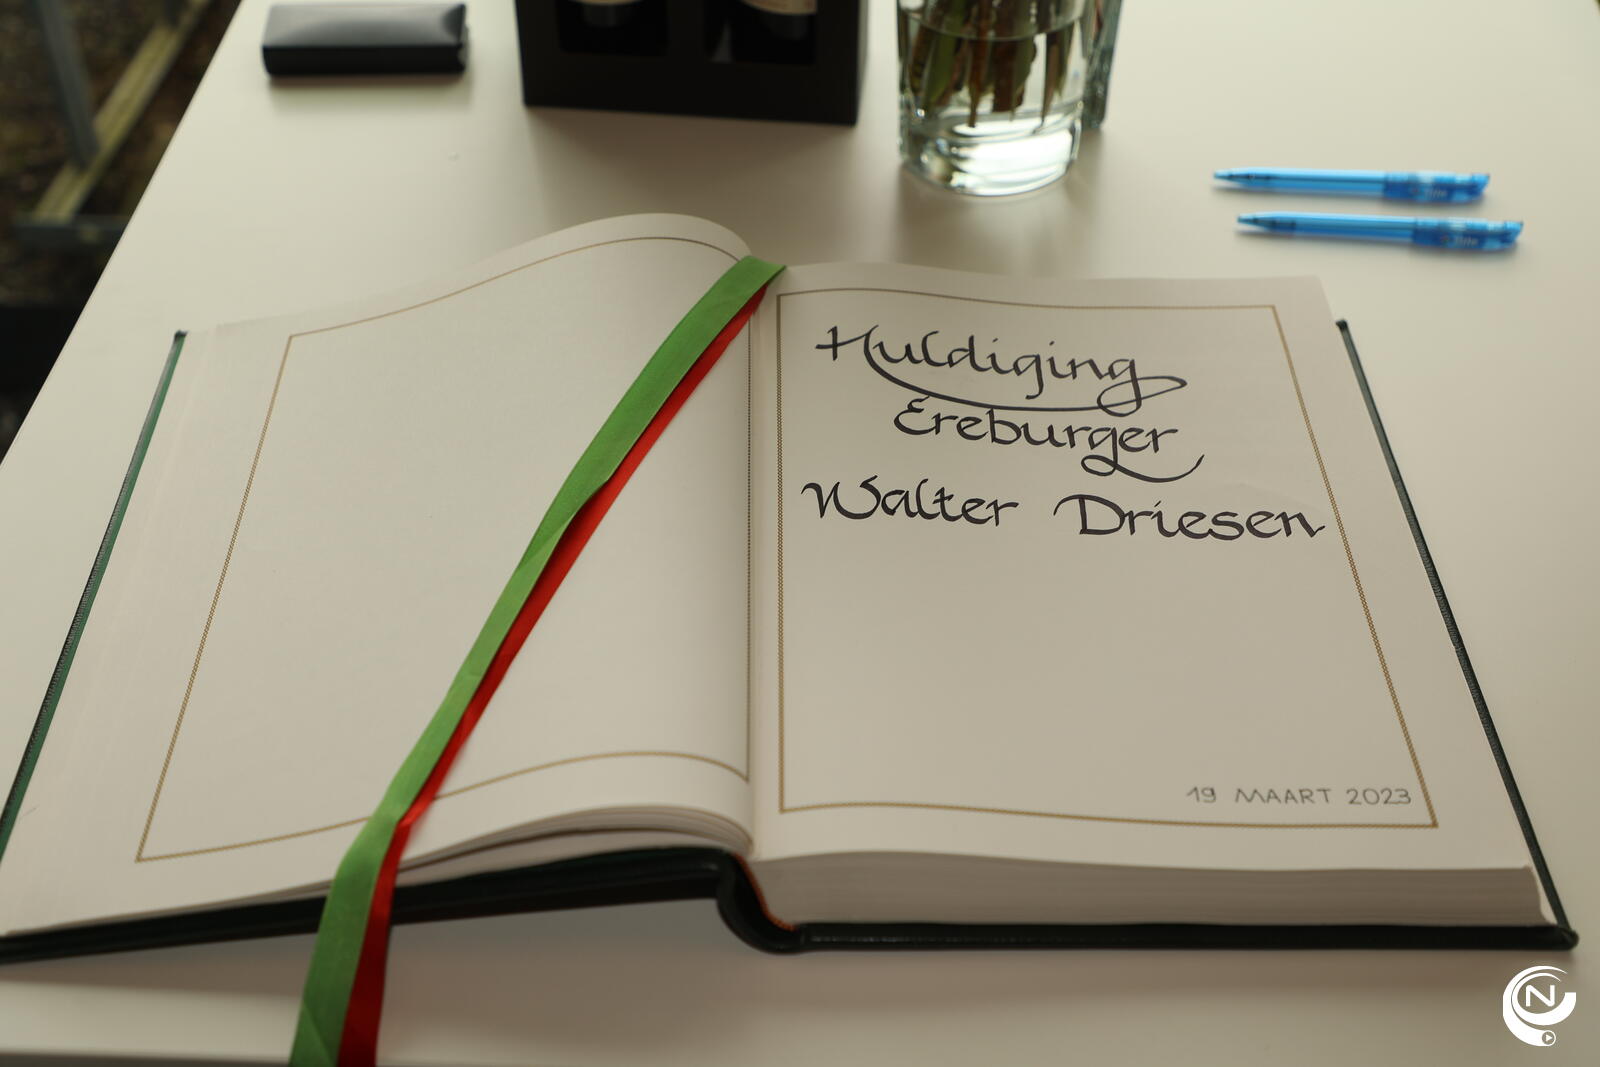 Huldiging
Ereburger
Walter Driesen
19 MAART 2023
N